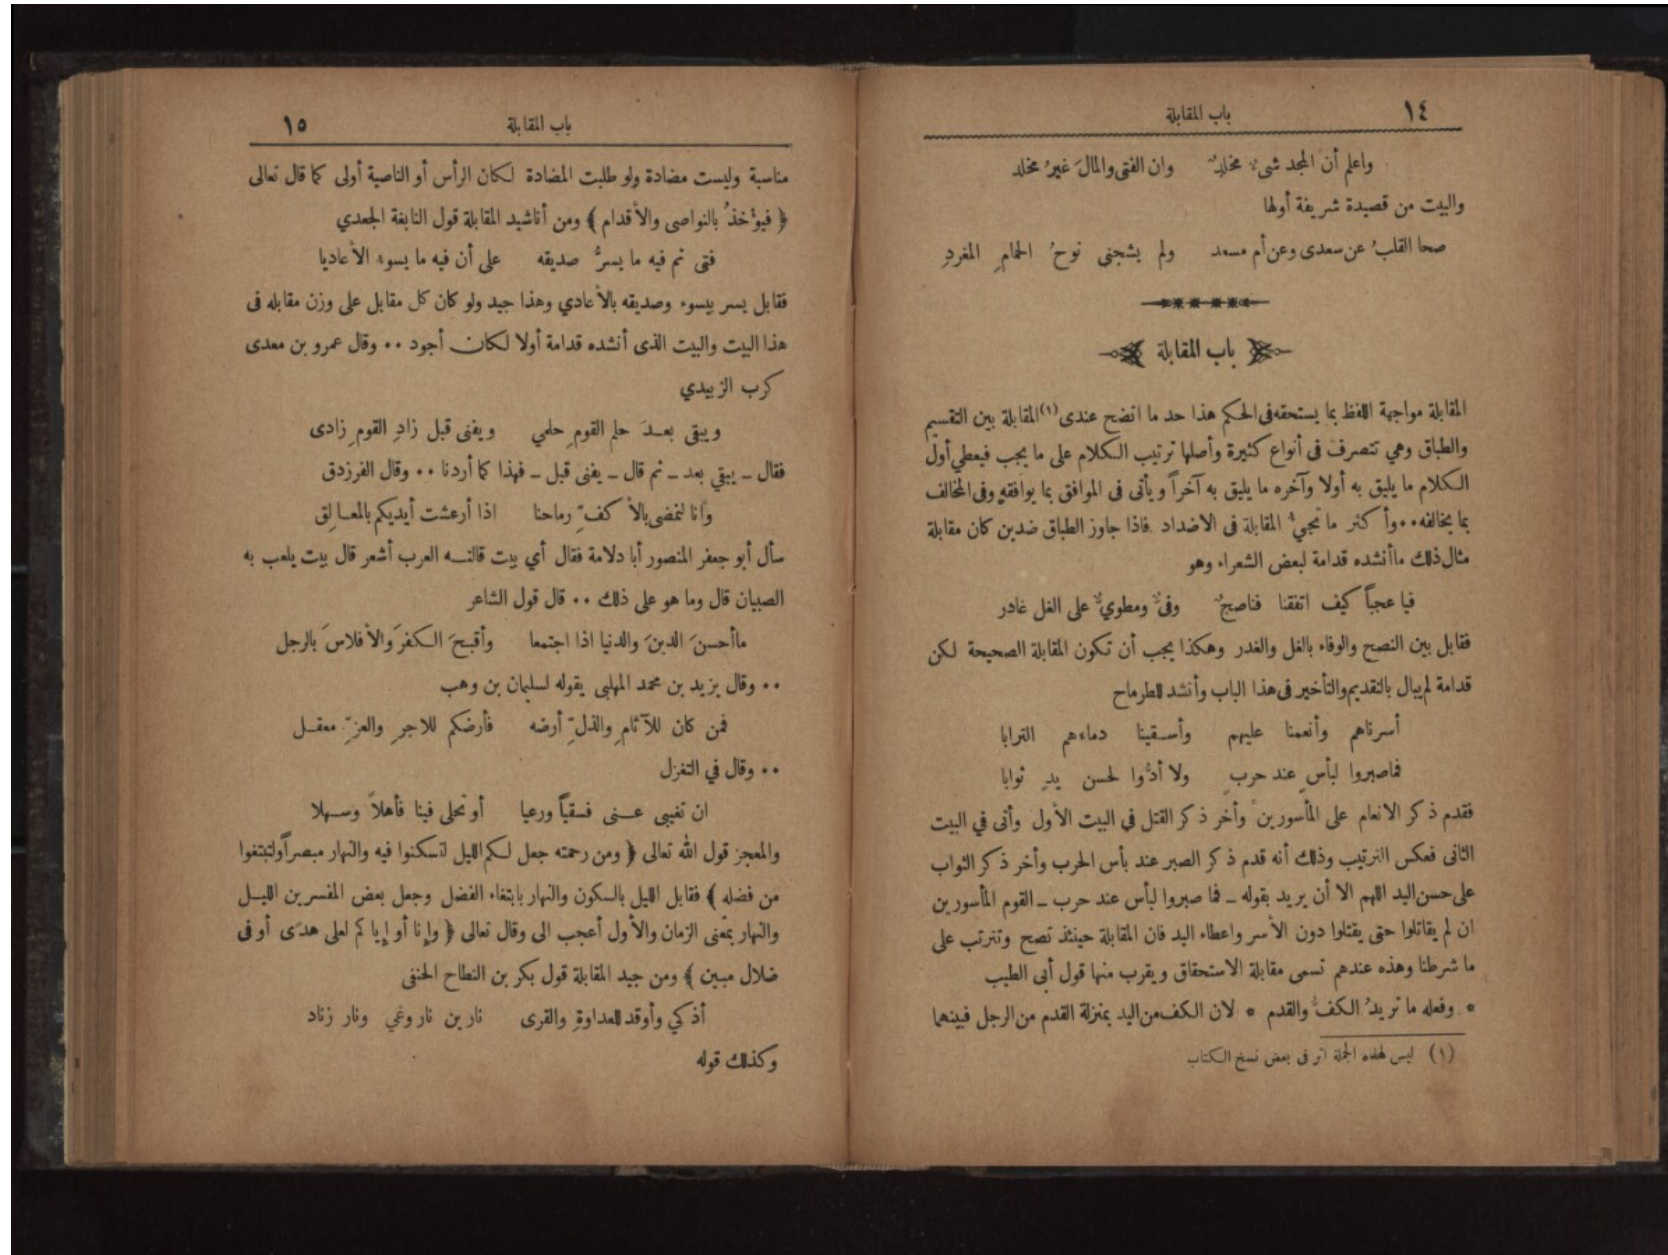 ١٤
باب المقابلة
واعلم أن المجد شيءٌ مخلدٌ وان الفتى والمالَ غيرُ مخلد
والبيت من قصيدة شريفة أولها
صحا القلبُ عن سعدى وعن أم مسعد ولم يشجنى نوحُ الحمامِ المغردِ
باب المقابلة
المقابلة مواجهة اللفظ بما يستحقه فى الحكم هذا حد ما اتضح عندى (١) المقابلة بين التقسيم
والطباق وهي تتصرف فى أنواع كثيرة وأصلها ترتيب الكلام على ما يجب فيعطي أول
الكلام ما يليق به أولا وآخره ما يليق به آخراً ويأتى فى الموافق بما يوافقه وفى المخالف
بما يخالفه ٠٠ وأكثر ما تجيءُ المقابلة فى الاضداد فاذا جاوز الطباق ضدين كان مقابلة
مثال ذلك ما أنشده قدامة لبعض الشعراء وهو
فيا عجباً كيف اتفقنا فناصحٌ وفىٌّ ومطويٌّ على الغل غادر
فقابل بين النصح والوفاء بالغل والغدر وهكذا يجب أن تكون المقابلة الصحيحة لكن
قدامة لم يبال بالتقديم والتأخير فى هذا الباب وأنشد للطرماح
أسرناهم وأنعمنا عليهم وأسقينا دماءهم الترابا
فما صبروا لبأسٍ عند حربٍ ولا أدُّوا لحسن يدٍ ثوابا
فقدم ذكر الانعام على المأسورين وأخر ذكر القتل في البيت الأول وأتى في البيت
الثانى فعكس الترتيب وذلك أنه قدم ذكر الصبر عند بأس الحرب وأخر ذكر الثواب
على حسن اليد اللهم الا أن يريد بقوله ـ فما صبروا لبأس عند حرب ـ القوم المأسورين
ان لم يقاتلوا حتى يقتلوا دون الأسر واعطاء اليد فان المقابلة حينئذ تصح وتترتب على
ما شرطنا وهذه عندهم تسمى مقابلة الاستحقاق ويقرب منها قول أبى الطيب
* وفعله ما تريدُ الكفُّ والقدم * لان الكف من اليد بمنزلة القدم من الرجل فبينهما
(١) ليس لهذه الجملة أثر فى بعض نسخ الكتاب
باب المقابلة
١٥
مناسبة وليست مضادة ولو طلبت المضادة لكان الرأس أو الناصية أولى كما قال تعالى
﴿ فيؤخذُ بالنواصى والأقدام ﴾ ومن أناشيد المقابلة قول النابغة الجعدي
فتى تم فيه ما يسرُّ صديقه على أن فيه ما يسوء الأعاديا
فقابل يسر بيسوء وصديقه بالأعادي وهذا جيد ولو كان كل مقابل على وزن مقابله فى
هذا البيت والبيت الذى أنشده قدامة أولا لكان أجود ٠٠ وقال عمرو بن معدى
كرب الزبيدي
ويبقى بعدَ حلم القومِ حلمي ويفنى قبل زادِ القومِ زادى
فقال ـ يبقي بعد ـ ثم قال ـ يفنى قبل ـ فهذا كما أردنا ٠٠ وقال الفرزدق
وانا لنمضى بالأكفِّ رماحنا اذا أرعشت أيديكم بالمعالق
سأل أبو جعفر المنصور أبا دلامة فقال أي بيت قالته العرب أشعر قال بيت يلعب به
الصبيان قال وما هو على ذلك ٠٠ قال قول الشاعر
ما أحسنَ الدينَ والدنيا اذا اجتمعا وأقبحَ الكفرَ والأفلاسَ بالرجل
٠٠ وقال يزيد بن محمد المهلبى يقوله لسليمان بن وهب
فمن كان للآثامِ والذلِّ أرضه فأرضكم للاجرِ والعزِّ معقل
٠٠ وقال في التغزل
ان تغيبى عنى فسقياً ورعيا أو تحلى فينا فأهلاً وسهلا
والمعجز قول الله تعالى ﴿ ومن رحمته جعل لكم الليل لتسكنوا فيه والنهار مبصراً ولتبتغوا
من فضله ﴾ فقابل الليل بالسكون والنهار بابتغاء الفضل وجعل بعض المفسرين الليل
والنهار بمعنى الزمان والأول أعجب الى وقال تعالى ﴿ وإنا أو إياكم لعلى هدى أو فى
ضلال مبين ﴾ ومن جيد المقابلة قول بكر بن النطاح الحنفى
أذكي وأوقد للعداوةِ والقرى نارين نار وغي ونار زناد
وكذلك قوله